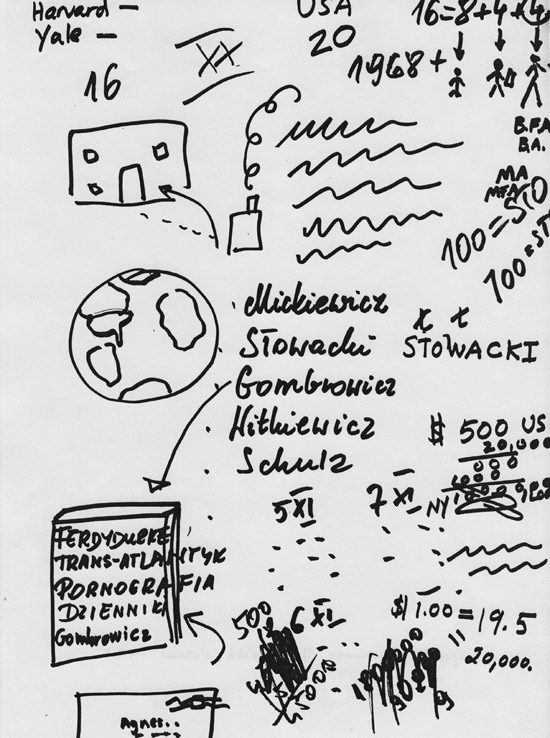 Harvard –
Yale –
USA
20
16=8+4+4
1968+
16
XX
B.F.A
B.A.
MA
MFA
100=50
100=ST
Mickiewicz
Słowacki
x x
SŁOWACKI
Gombrowicz
Witkiewicz
Schulz
$ 500 US
20,000
000
5 XI
7 XI
NY
FERDYDURKE
TRANS-ATLANTYK
PORNOGRAFIA
DZIENNIKI
Gombrowicz
500
6 XI
$ 1.00 = 19.5
20,000.
Agnes..